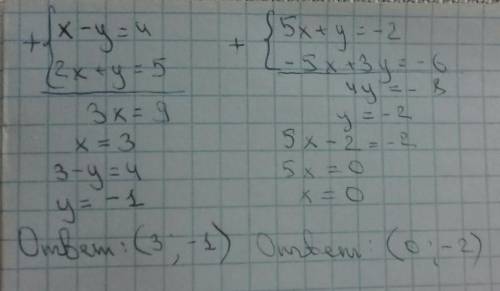 + { x - y = 4
2x + y = 5
3x = 9
x = 3
3 - y = 4
y = -1
Ответ: (3 ; -1)
+ { 5x + y = -2
-5x + 3y = -6
4y = -8
y = -2
5x - 2 = -2
5x = 0
x = 0
Ответ: (0 ; -2)